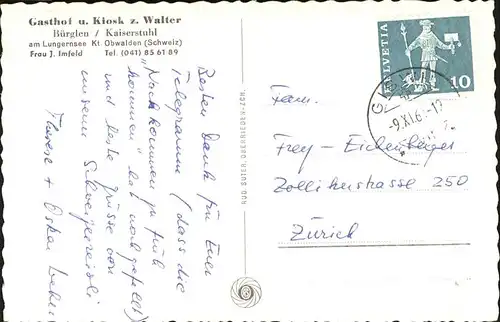 Gasthof u. Kiosk z. Walter
Bürglen / Kaiserstuhl
am Lungernsee Kt. Obwalden (Schweiz)
Frau J. Imfeld Tel. (041) 85 61 89
Besten Dank für Euer
Telegramm (dass die
"Nachkommen zu früh
kommen" hat noch gefehlt)
und beste Grüsse von
unserem Schweizerreisli
Therese + Oskar
HELVETIA
10
-9.XI.6
Fam.
Frey - Eichenberger
Zollikerstrasse 250
Zürich